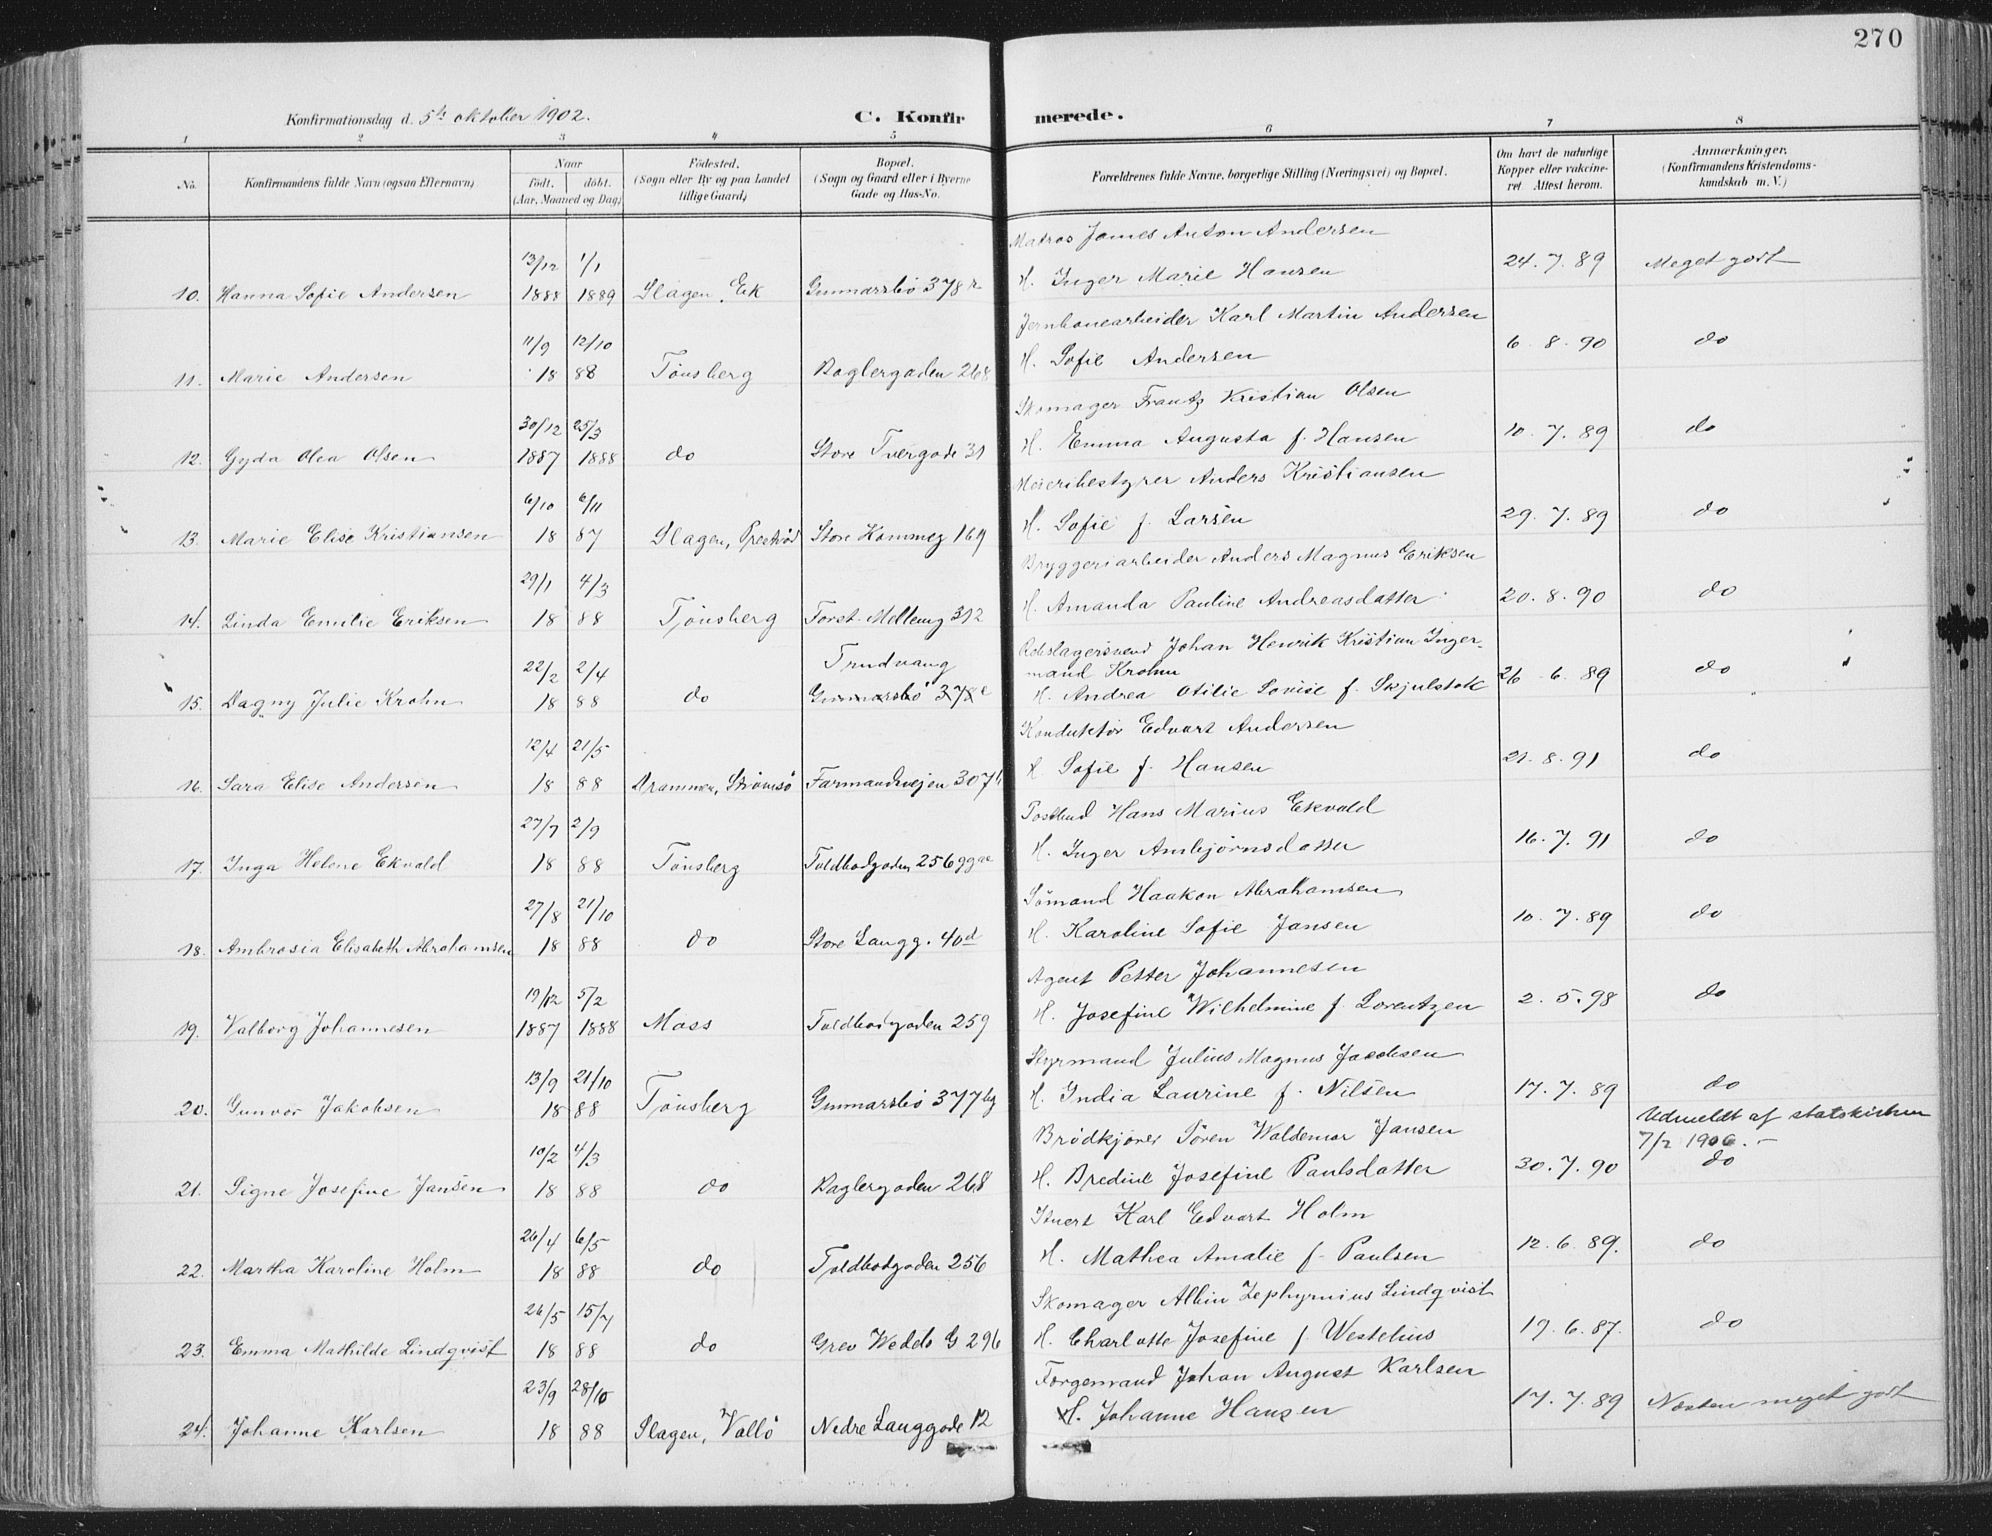 270
Konfirmationsdag d. 5te oktober 1902.
C. Konfirmerede.
1 2 3 4 5 6 7 8
No.
Konfirmandens fulde Navn (ogsaa Efternavn)
Naar
født. døbt.
(Aar, Maaned og Dag)
Fødested.
(Sogn eller By og paa Landet
tillige Gaard)
Bopæl.
(Sogn og Gaard eller i Byerne
Gade og Hus-No.
Forældrenes fulde Navne, borgerlige Stilling (Næringsvei) og Bopæl.
Om havt de naturlige
Kopper eller vakcine-
ret Attest herom.
Anmærkninger.
(Konfirmandens Kristendoms-
kundskab m. V.)
Matros James Anton Andersen
13/12 1/1
10. Hanna Sofie Andersen 1888 1889 Slagen, Ek Gunnarsbø 378 H. Inger Marie Hansen 24.7.89 Meget godt
Jernbanearbeider Karl Martin Andersen
11/9 12/10
11. Marie Andersen 18 88 Tønsberg Baglergaden 268 H. Sofie Andersen 6.8.90 do
Skomager Frantz Kristian Olsen
30/12 25/3
12. Gyda Olea Olsen 1887 1888 do Store Tvergade 31 H. Emma Augusta f. Hansen 10.7.89 do
Meieribestyrer Anders Kristiansen
6/10 6/11
13. Marie Elise Kristiansen 18 87 Slagen, Presterød Store Kammeg 169 H. Sofie f. Larsen 29.7.89 do
Bryggeriarbeider Anders Magnus Eriksen
29/1 4/3
14. Linda Emilie Eriksen 18 88 Tjønsberg Forst. Mellemg 312 H. Amanda Pauline Andreasdatter 20.8.90 do
Rebslagersvend Johan Henrik Kristian Inger-
22/2 2/4 Trudvang mand Krohn
15. Dagny Julie Krohn 18 88 do Gunnarsbø 378e H. Andrea Otilie Lovise f. Skjulstok 26.6.89 do
Konduktør Edvart Andersen
12/4 21/5
16. Sara Elise Andersen 18 88 Drammen, Strømsø Farmandsvejen 307b H. Sofie f. Hansen 21.8.91 do
Postbud Hans Marius Ekvald
27/7 2/9
17. Inga Helene Ekvald 18 88 Tønsberg Toldbodgaden 256 H. Inger Ambjørnsdatter 16.7.91 do
Sømand Haakon Abrahamsen
27/8 21/10
18. Ambrosia Elisabeth Abrahamsen 18 88 do Store Langg. 40d H. Karoline Sofie Jansen 10.7.89 do
Agent Petter Johannesen
19/12 5/2
19. Valborg Johannesen 1887 1888 Moss Toldbodgaden 259 H. Josefine Wilhelmine f. Lorentzen 2.5.98 do
Styrmand Julius Magnus Jacobsen
13/9 21/10
20. Gunvor Jakobsen 18 88 Tjønsberg Gunnarsbø 377bg H. India Laurine f. Nilsen 17.7.89 do
Brødkjører Søren Waldemar Jansen Udmeldt af statskirken
10/2 4/3 7/2 1906.-
21. Signe Josefine Jansen 18 88 do Baglergaden 268 H. Bredine Josefine Paulsdatter 30.7.90 do
Stuert Karl Edvart Holm
26/4 6/5
22. Martha Karoline Holm 18 88 do Toldbodgaden 256 H. Mathea Amalie f. Paulsen 12.6.89. do
Skomager Albin Zephyrnius Lindqvist
26/5 15/7
23. Emma Mathilde Lindqvist 18 88 do Grev Wedels G 296 H. Charlotte Josefine f. Westelius 19.6.87. do
Forgemand Johan August Karlsen
23/9 28/10
24. Johanne Karlsen 18 88 Slagen, Vallø Nedre Langgade 12 H. Johanne Hansen 17.7.89 Næsten meget godt